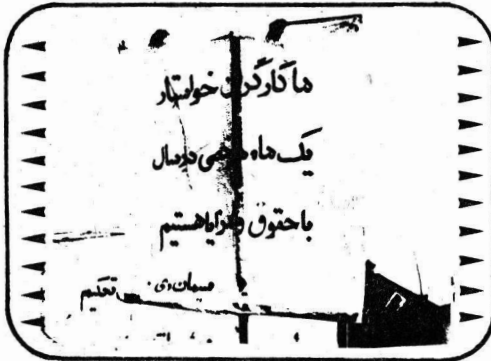 ما کارگران خواستار
یک ماه مرخصی در سال
با حقوق و مزایا هستیم